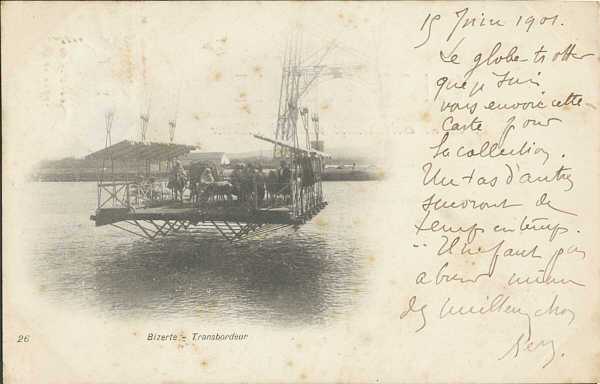 15 Juin 1901.
Le globe-trotter
que je suis
vous envoie cette
Carte pour
la collection.
Un tas d'autres
suivront de
temps en temps.
Il ne faut pas
abuser même
des meilleures choses
26
Bizerte - Transbordeur